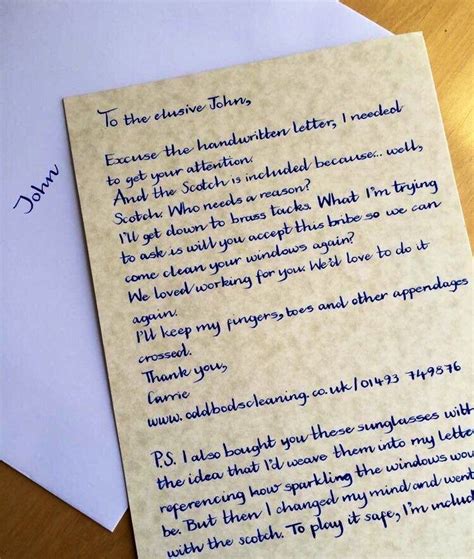 John
To the elusive John,
Excuse the handwritten letter, I needed
to get your attention.
And the Scotch is included because... well,
Scotch. Who needs a reason?
I'll get down to brass tacks. What I'm trying
to ask is will you accept this bribe so we can
come clean your windows again?
We loved working for you. We'd love to do it
again.
I'll keep my fingers, toes and other appendages
crossed.
Thank you,
Carrie
www.oddbodscleaning.co.uk/01493 749876
P.S. I also bought you these sunglasses with
the idea that I'd weave them into my letter
referencing how sparkling the windows wou
be. But then I changed my mind and went
with the scotch. To play it safe, I'm includ